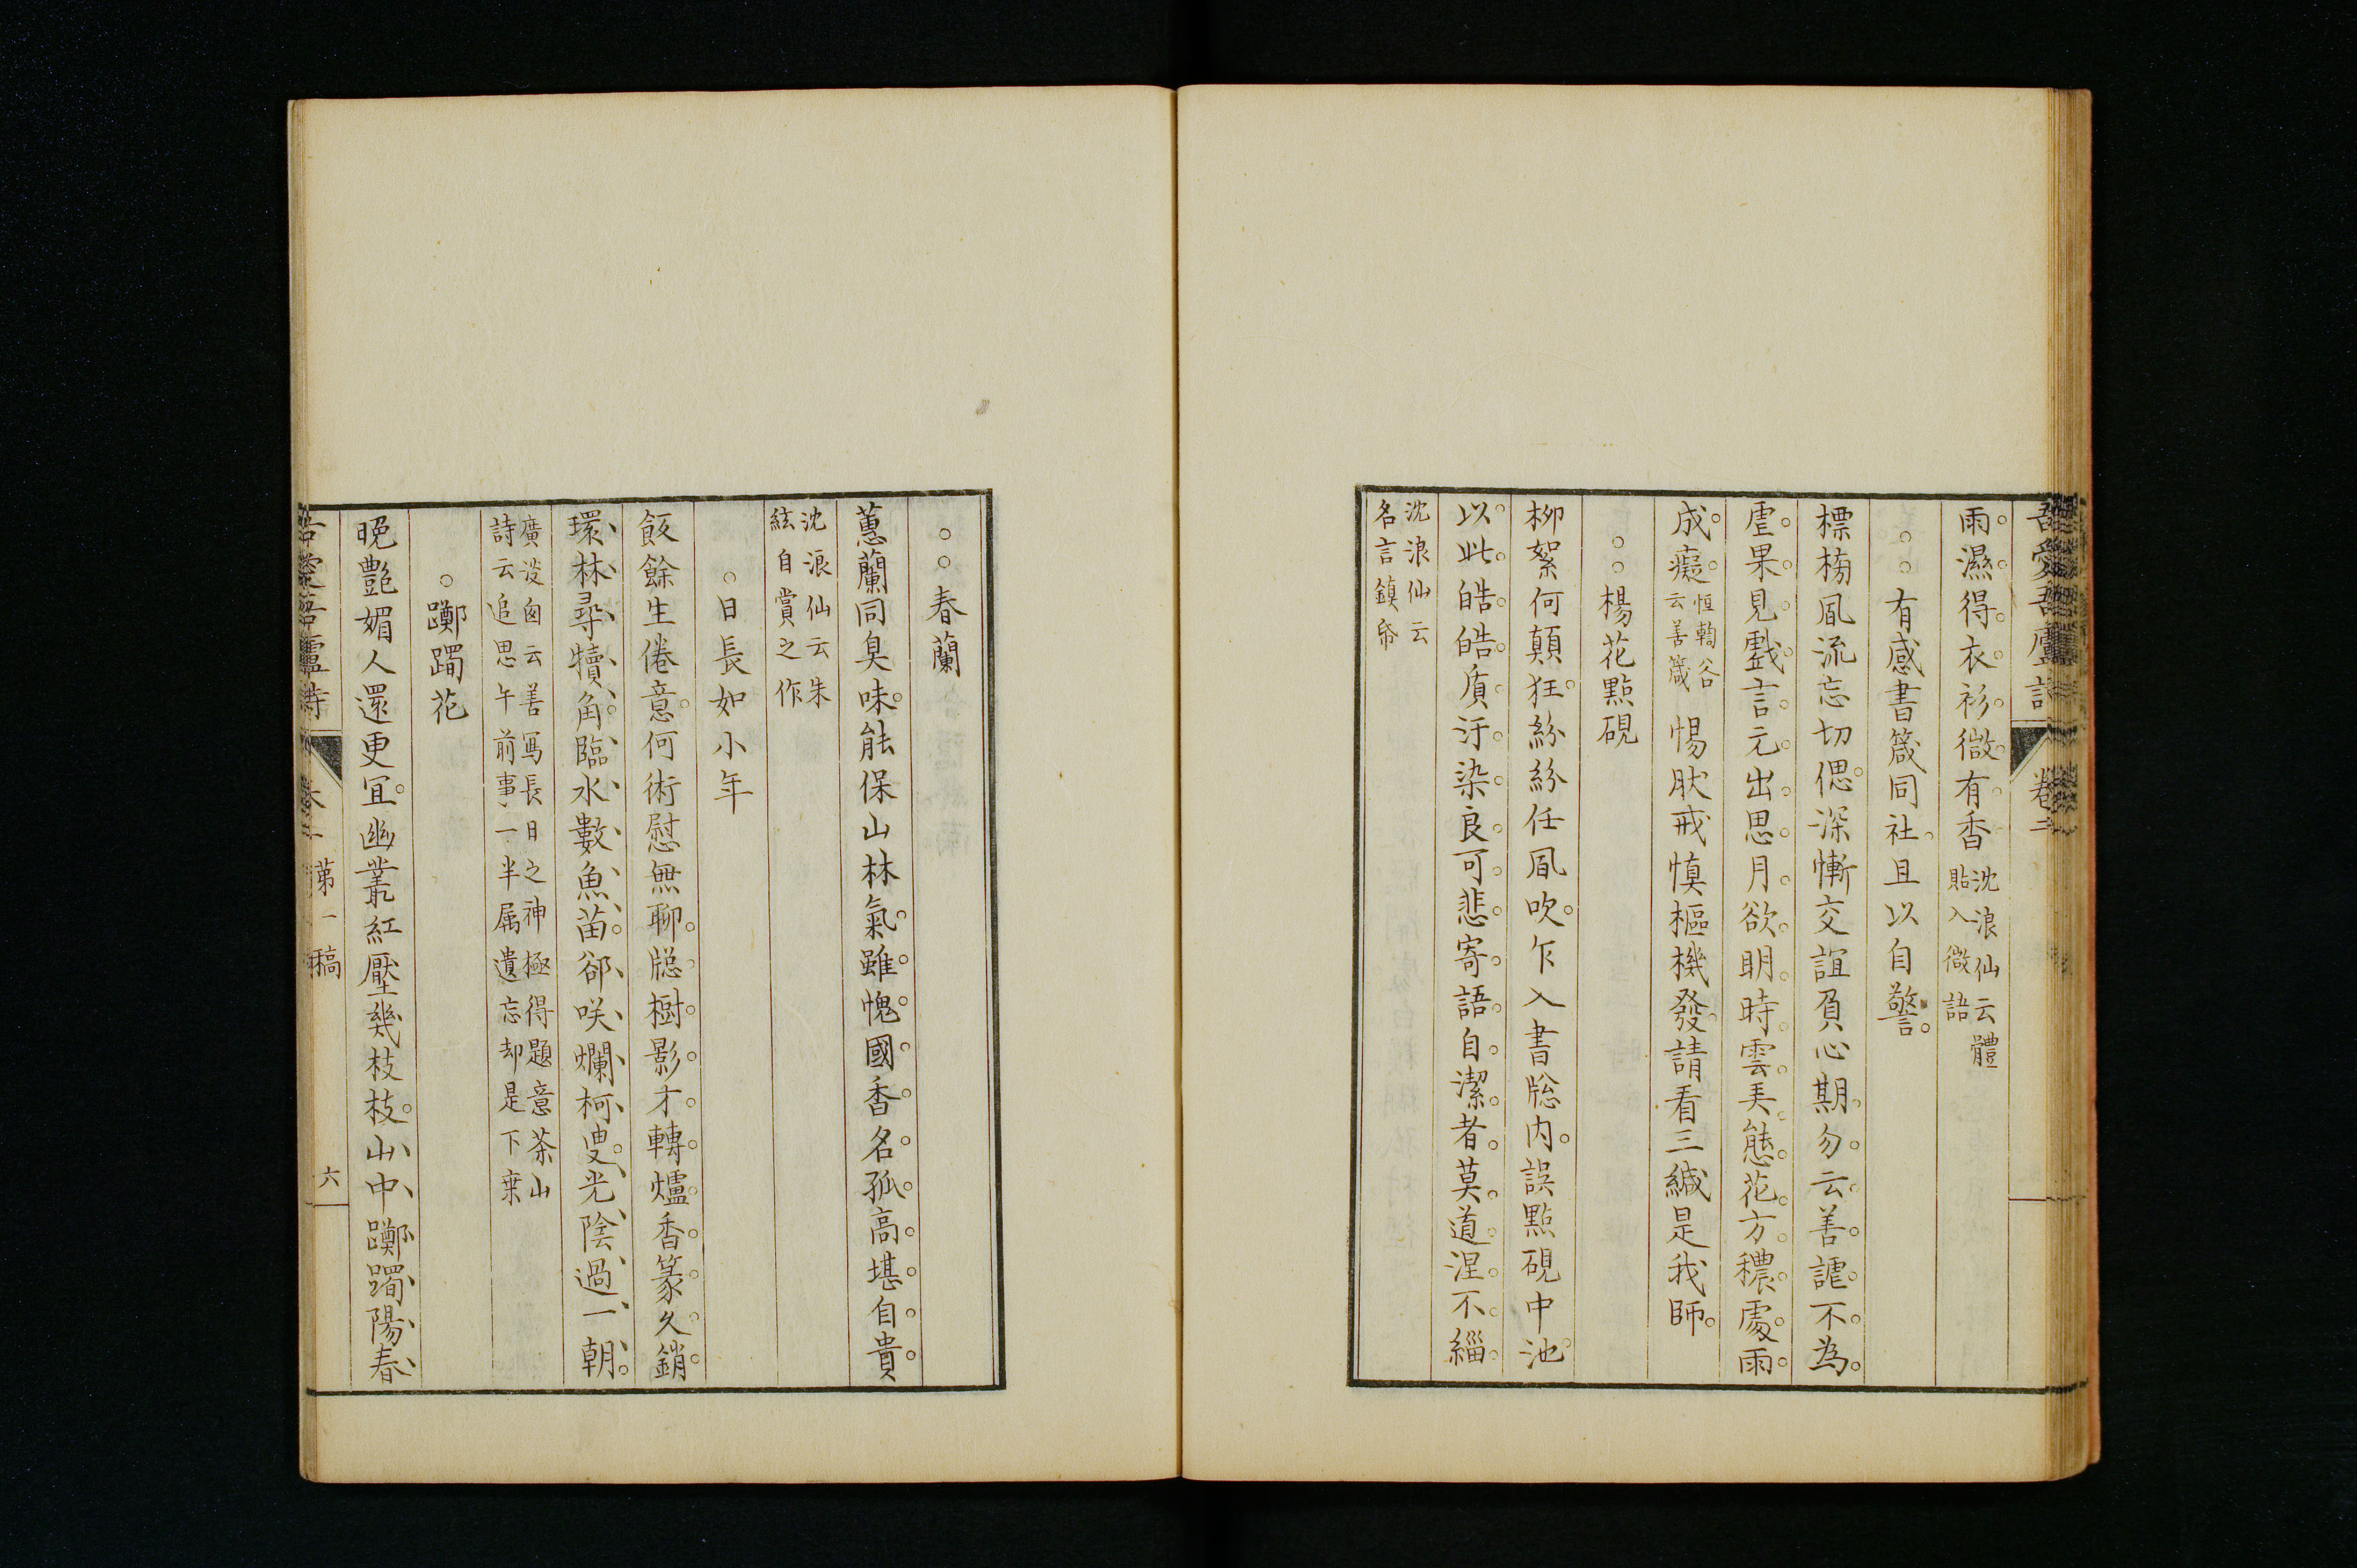 吾愛吾廬詩 卷二
雨濕得衣衫微有香 沈浪仙云體
貼入微語
有感書箴同社且以自警
標榜風流忘切偲深慚交誼負心期勿云善謔不為
虐果見戲言元出思月欲明時雲美態花方穠處雨
成癡 恒軒谷
云善箴 惕肰戒慎樞機發請看三緘是我師
楊花點硯
柳絮何顛狂紛紛任風吹乍入書牕内誤點硯中池
以此皓皓質汙染良可悲寄語自潔者莫道涅不緇
沈浪仙云
名言鎮帋
春蘭
蕙蘭同臭味能保山林氣雖愧國香名孤高堪自貴
沈浪仙云朱
絃自賞之作
日長如小年
飯餘生倦意何術慰無聊牕樹影才轉爐香篆久銷
環林尋犢角臨水數魚苗郤咲爛柯叟光陰過一朝
廣淡囪云善冩長日之神極得題意茶山
詩云追思午前事一半属遺忘却是下乗
躑躅花
晚艷媚人還更宜幽叢紅壓幾枝枝山中躑躅陽春
吾愛吾廬詩 第一稿 六